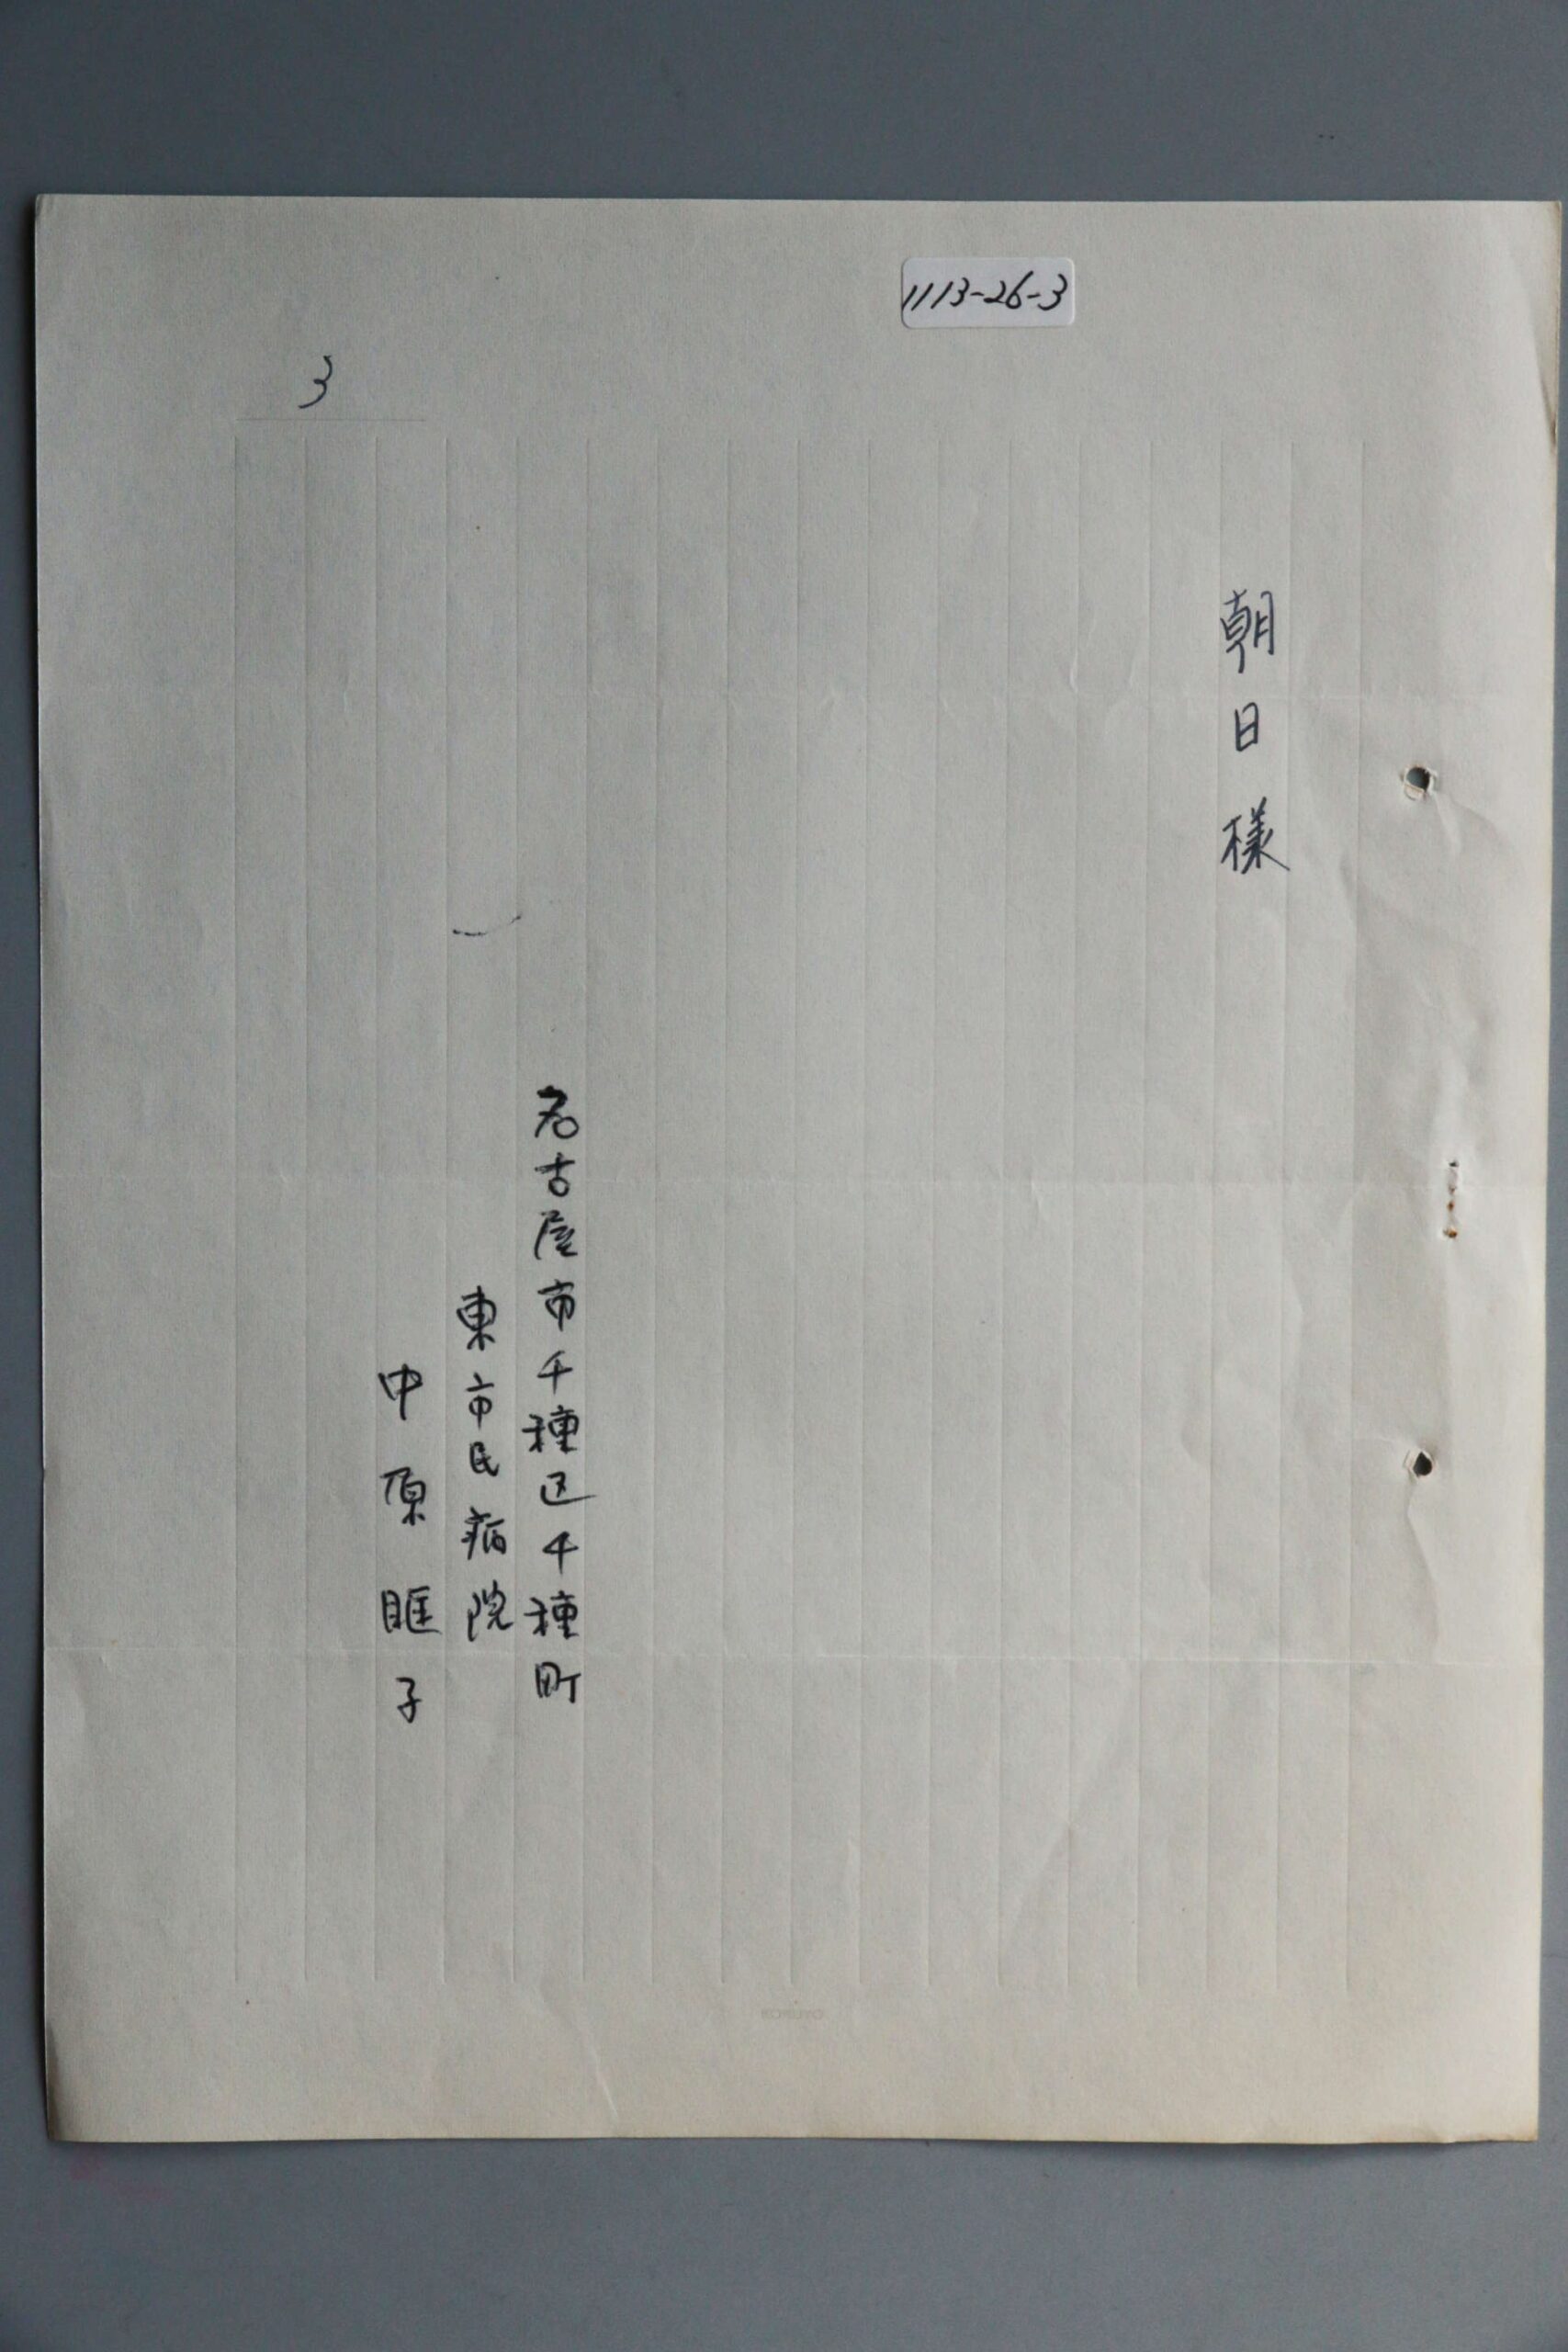 1113-26-3
3
朝日様
名古屋市千種区千種町
東市民病院
中原眶子